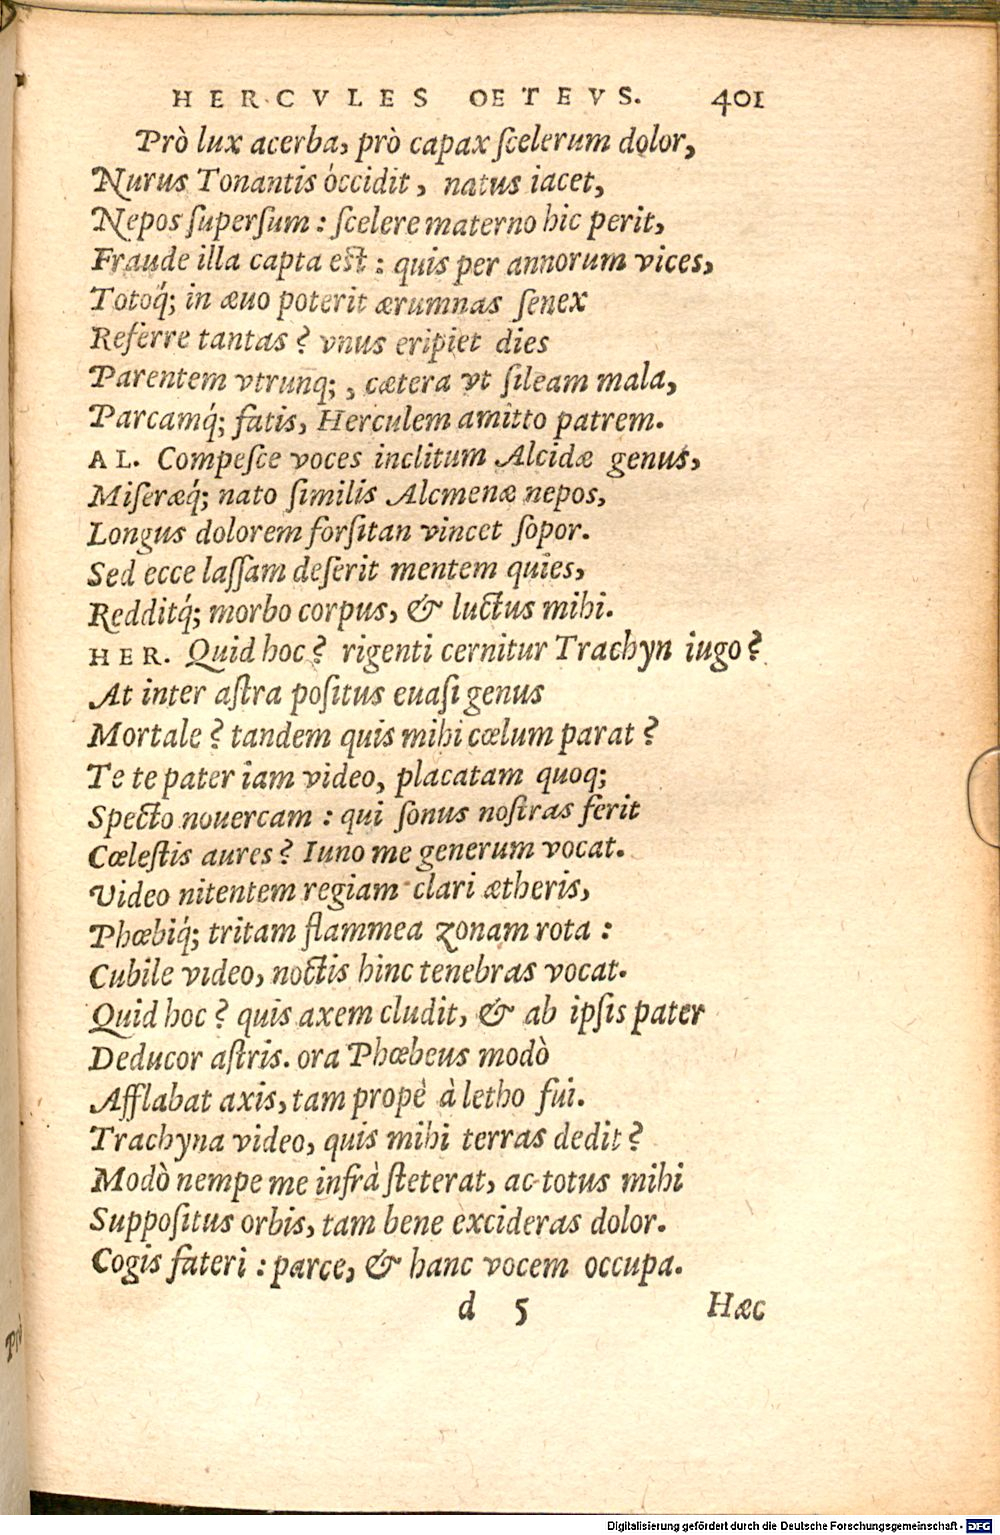 HERCVLES OETEVS. 401
Prò lux acerba, prò capax ſcelerum dolor,
Nurus Tonantis óccidit, natus iacet,
Nepos ſuperſum: ſcelere materno hic perit,
Fraude illa capta eſt: quis per annorum vices,
Totoq́; in æuo poterit ærumnas ſenex
Referre tantas? vnus eripiet dies
Parentem vtrunq;, cætera vt ſileam mala,
Parcamq́; fatis, Herculem amitto patrem.
AL. Compeſce voces inclitum Alcidæ genus,
Miſeræq́; nato ſimilis Alcmenæ nepos,
Longus dolorem forſitan vincet ſopor.
Sed ecce laſſam deſerit mentem quies,
Redditq́; morbo corpus, & luctus mihi.
HER. Quid hoc? rigenti cernitur Trachyn iugo?
At inter aſtra poſitus euaſi genus
Mortale? tandem quis mihi cœlum parat?
Te te pater iam video, placatam quoq;
Specto nouercam: qui ſonus noſtras ferit
Cœleſtis aures? Iuno me generum vocat.
Video nitentem regiam clari ætheris,
Phœbiq́; tritam flammea zonam rota:
Cubile video, noctis hinc tenebras vocat.
Quid hoc? quis axem cludit, & ab ipſis pater
Deducor aſtris. ora Phœbeus modò
Afflabat axis, tam propè à letho fui.
Trachyna video, quis mihi terras dedit?
Modò nempe me infrà ſteterat, ac totus mihi
Suppoſitus orbis, tam bene excideras dolor.
Cogis fateri: parce, & hanc vocem occupa.
d 5 Hæc
Digitalisierung gefördert durch die Deutsche Forschungsgemeinschaft - DFG